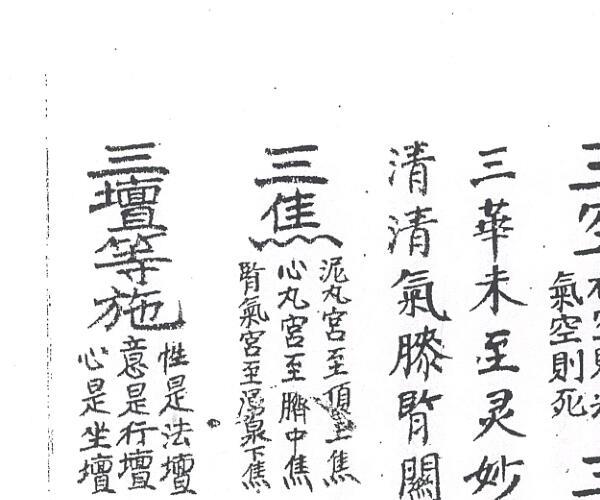 三空
氣空則死
三
三華未至灵妙
清清氣滕腎關
三焦
泥丸宮至頂上焦
心丸宮至臍中焦
腎氣宮至湧泉下焦
三壇等施
性是法壇
意是行壇
心是坐壇